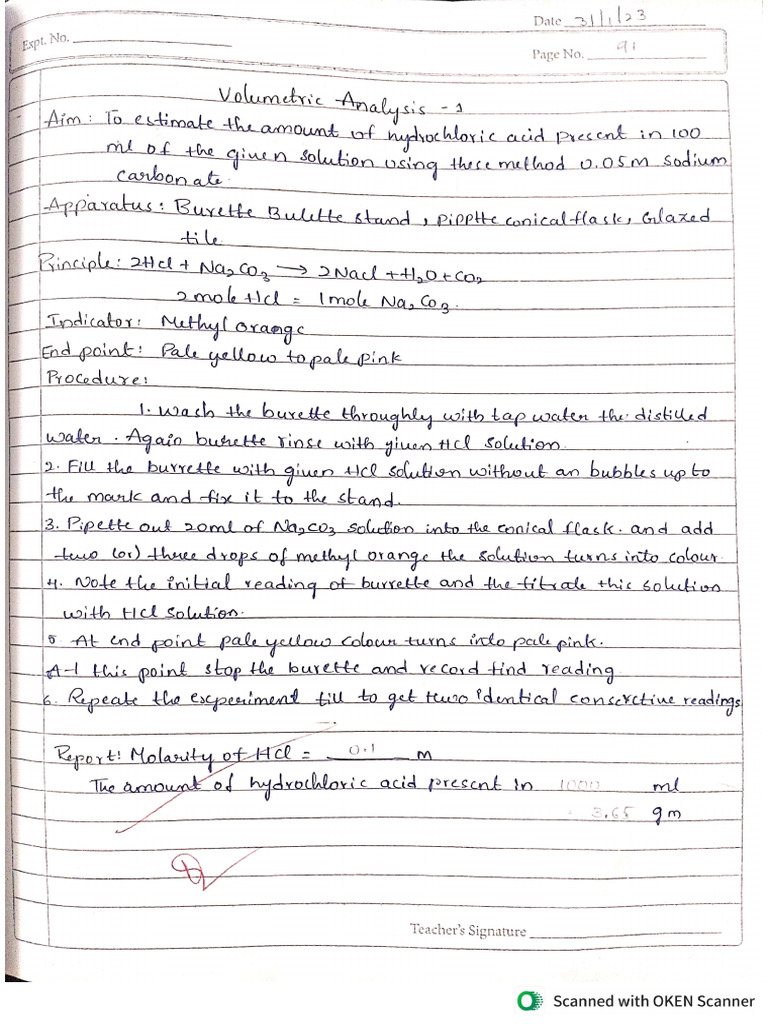 Date 31/1/23
Expt. No.
Page No. 91
Volumetric Analysis - 1
Aim: To estimate the amount of hydrochloric acid present in 100
ml of the given solution using these method 0.05M Sodium
carbonate.
Apparatus: Burette Bulette stand, pipptte conical flask, Glazed
tile
Principle: 2Hcl + Na2CO3 → 2Nacl + H2O + CO2
2 mole Hcl = 1 mole Na2CO3.
Indicator: Methyl orange
End point: Pale yellow to pale pink
Procedure:
1. Wash the burette throughly with tap water the distilled
water. Again burette rinse with given Hcl solution.
2. Fill the burrette with given Hcl solution without an bubbles up to
the mark and fix it to the stand.
3. Pipette out 20ml of Na2CO3 solution into the conical flask. and add
two (or) three drops of methyl orange the solution turns into colour.
4. Note the initial reading of burrette and the titrate this solution
with Hcl solution.
5. At end point pale yellow colour turns into pale pink.
A-l this point stop the burette and record find reading
6. Repeate the experiment till to get two identical consecctive readings
Report: Molarity of Hcl = 0.1 M
The amount of hydrochloric acid present in 1000 ml
= 3.65 gm
Teacher's Signature
Scanned with OKEN Scanner